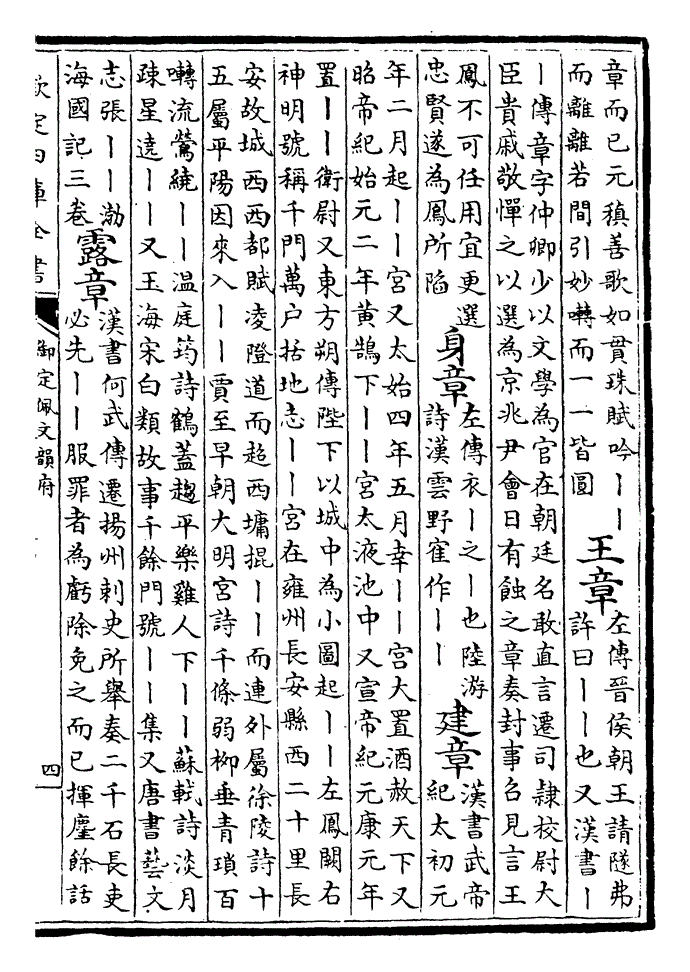 章而已元稹善歌如貫珠賦吟丨丨
而離離若間引妙囀而一一皆圓
王章
左傳晉侯朝王請隧弗
許曰丨丨也又漢書丨
丨傳章字仲卿少以文學為官在朝廷名敢直言遷司隸校尉大
臣貴戚敬憚之以選為京兆尹會日有蝕之章奏封事召見言王
鳳不可任用宜更選
忠賢遂為鳳所陷
身章
左傳衣丨之丨也陸游
詩漢雲野寉作丨丨
建章
漢書武帝
紀太初元
年二月起丨丨宮又太始四年五月幸丨丨宮大置酒赦天下又
昭帝紀始元二年黃鵠下丨丨宮太液池中又宣帝紀元康元年
置丨丨衛尉又東方朔傳陛下以城中為小圖起丨丨左鳳闕右
神明號稱千門萬户括地志丨丨宮在雍州長安縣西二十里長
安故城西西都賦凌隥道而超西墉掍丨丨而連外屬徐陵詩十
五屬平陽因來入丨丨賈至早朝大明宮詩千條弱柳垂青瑣百
囀流鶯繞丨丨溫庭筠詩鶴蓋趨平樂雞人下丨丨蘇軾詩淡月
疎星遶丨丨又玉海宋白類故事千餘門號丨丨集又唐書藝文
志張丨丨渤
海國記三卷
露章
漢書何武傳遷揚州刺史所舉奏二千石長吏
必先丨丨服罪者為虧除免之而已揮麈餘話
欽定四庫全書
御定佩文韻府
四